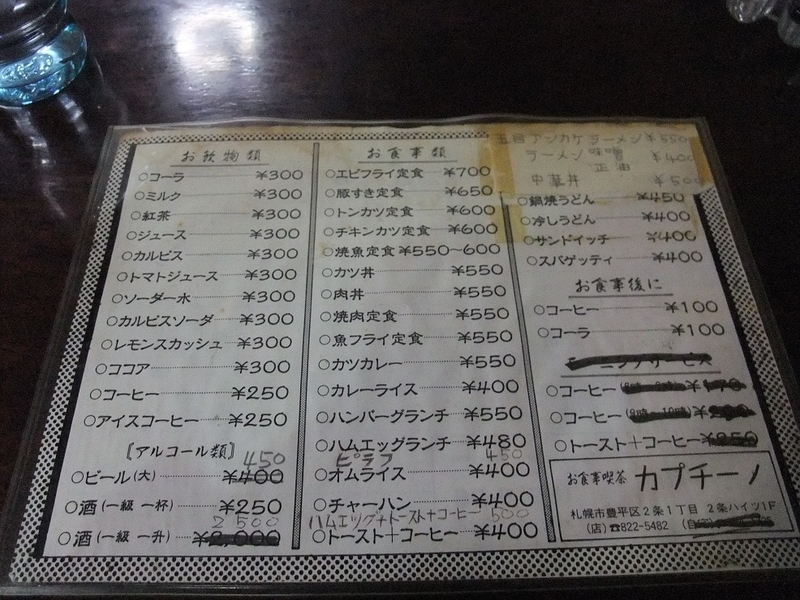 お飲物類
○コーラ ¥300
○ミルク ¥300
○紅茶 ¥300
○ジュース ¥300
○カルピス ¥300
○トマトジュース ¥300
○ソーダー水 ¥300
○カルピスソーダ ¥300
○レモンスカッシュ ¥300
○ココア ¥300
○コーヒー ¥250
○アイスコーヒー ¥250
〔アルコール類〕
450
○ビール(大) ¥400
○酒(一級 一杯) ¥250
2500
○酒(一級 一升) ¥2,000
お食事類
○エビフライ定食 ¥700
○豚すき定食 ¥650
○トンカツ定食 ¥600
○チキンカツ定食 ¥600
○焼魚定食 ¥550〜600
○カツ丼 ¥550
○肉丼 ¥550
○焼肉定食 ¥550
○魚フライ定食 ¥550
○カツカレー ¥550
○カレーライス ¥400
○ハンバーグランチ ¥550
○ハムエッグランチ ¥480
ピラフ 450
○オムライス ¥400
○チャーハン ¥400
ハムエッグ+トースト+コーヒー 500
○トースト+コーヒー ¥400
五目アンカケラーメン ¥550
ラーメン 味噌 ¥400
正油
中華丼 ¥500
○鍋焼うどん ¥450
○冷しうどん ¥400
○サンドイッチ ¥400
○スパゲッティ ¥400
お食事後に
○コーヒー ¥100
○コーラ ¥100
モーニングサービス
○コーヒー
○コーヒー
○トースト+コーヒー ¥350
お食事喫茶 カプチーノ
札幌市豊平区2条1丁目 2条ハイツ1F
(店)☎822-5482 (自宅)